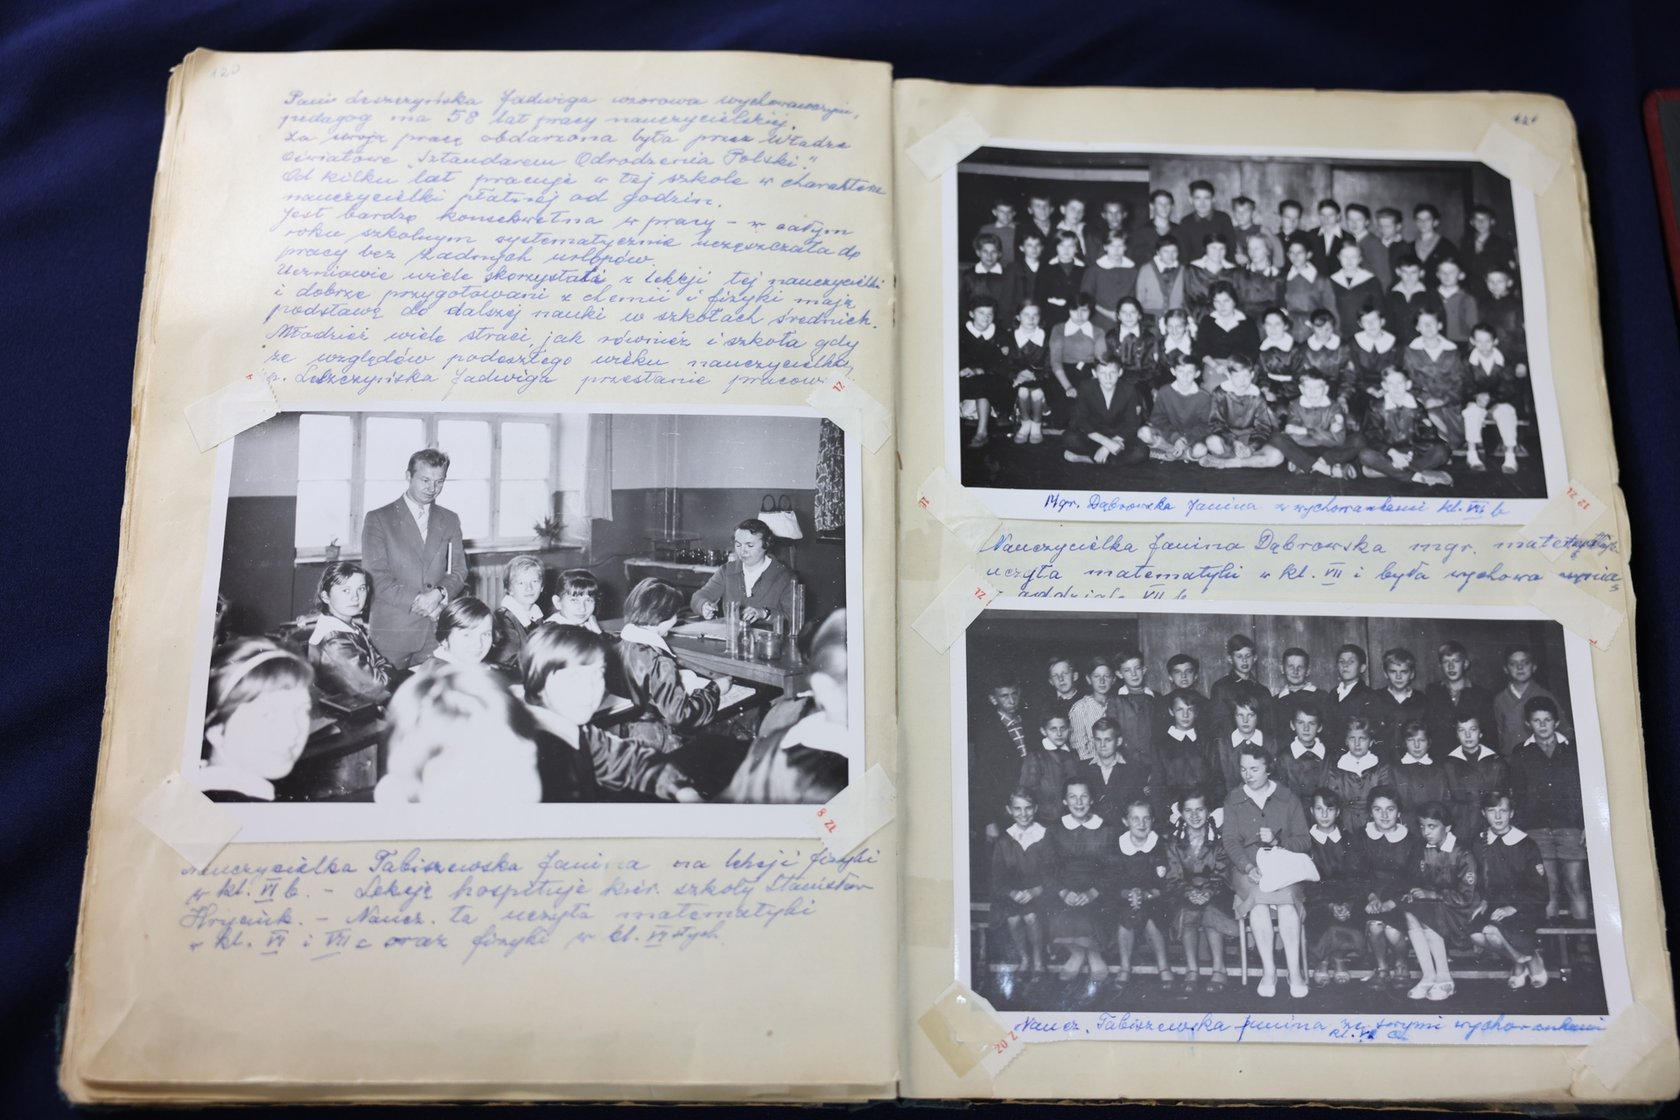 120
Pani Leszczyńska Jadwiga wzorowa wychowawczyni,
pedagog ma 58 lat pracy nauczycielskiej.
Za swoją pracę obdarzona była przez Władze
Oświatowe „Sztandarem Odrodzenia Polski."
Od kilku lat pracuje w tej szkole w charakterze
nauczycielki płatnej od godzin.
Jest bardzo konsekwetna w pracy – w całym
roku szkolnym systematycznie uczęszczała do
pracy bez żadnych urlopów.
Uczniowie wiele skorzystali z lekcji tej nauczycielki
i dobrze przygotowani z chemii i fizyki mają
podstawę do dalszej nauki w szkołach średnich.
Młodzież wiele straci, jak również i szkoła gdy
ze względów podeszłego wieku nauczycielka,
p. Leszczyńska Jadwiga przestanie pracow.
ZŁ
8 ZŁ
Nauczycielka Tabiszewska Janina na lekcji fizyki
w kl. VI b. – Lekcję hospituje kier. szkoły Stanisław
– Naucz. ta uczyła matematyki
w kl. VI i VII c oraz fizyki w kl. VI-stych.
121
Mgr. Dąbrowska Janina z wychowankami kl. VII b
12 ZŁ
Nauczycielka Janina Dąbrowska mgr.
uczyła matematyki w kl. VII i była wychowa
VII b
20 Z
Naucz. Tabiszewska Janina ze swymi wychowankami
kl.